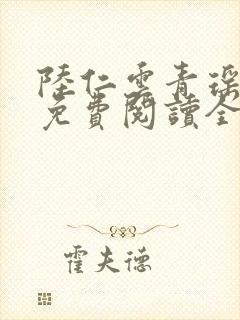 陸仁雲青瑤
免費閱讀全
霍夫德